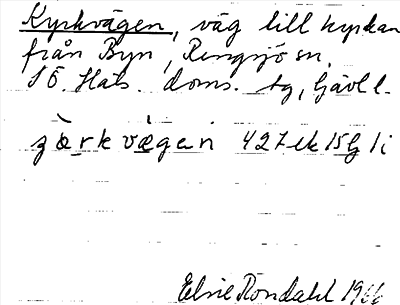 Kyrkvägen, väg till kyrkan
från Byn, Rengsjö sn,
SÖ. Häls. doms. tg, Gävl l.
427 ek 15g 1i
Elsie Rondahl 1966